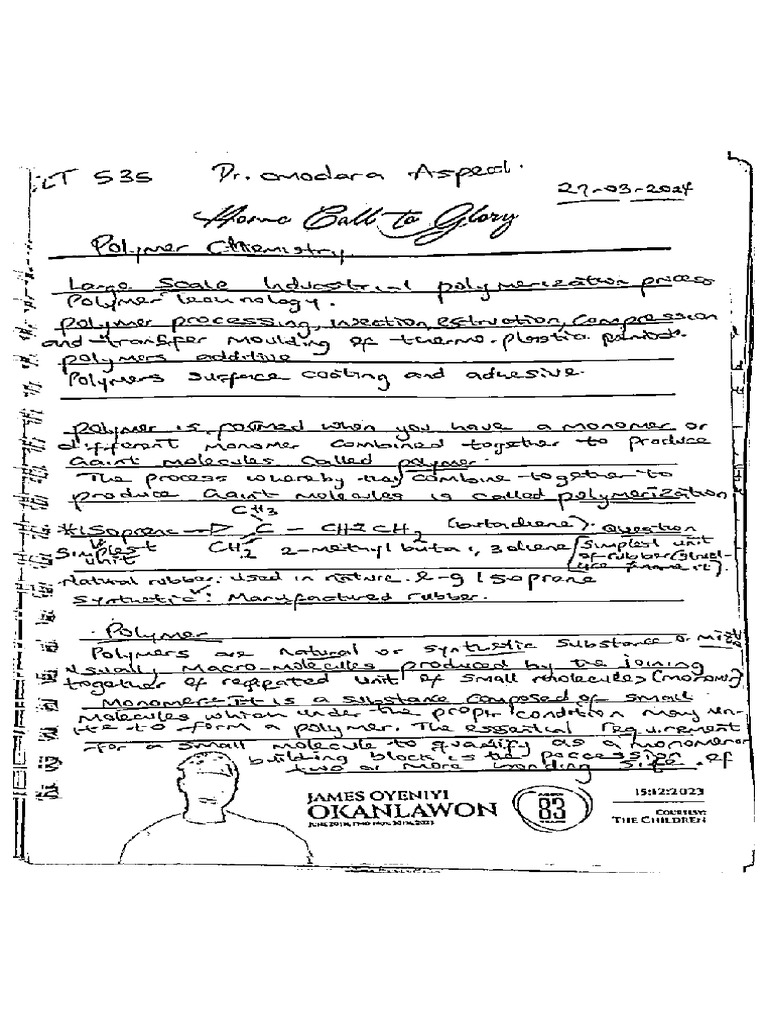 LT 535 Dr. Omodara Aspect.
27-03-2024
Home Call to Glory
Polymer Chemistry
Large Scale Industrial polymerization process
Polymer Technology.
polymer processing, injection, extrution, Compression
and transfer moulding of thermo-plastic
polymers additive
Polymers surface coating and adhesive.
Polymer is formed when you have a monomer or
different monomer combined together to produce
Gaint molecules called polymer.
The process whereby they combine together to
produce Gaint molecules is called polymerization
CH3
*Isoprene C - CH2 CH2 (butadiene). Question
Simplest CH2 2-methyl buta 1, 3 diene Simplest unit
unit of rubber
Natural rubber: used in nature e-g Isoprene
Synthetic: Manufactured rubber.
Polymer
Polymers are natural or synthetic substance or
Usually Macro-molecules produced by the joining
together of repeated unit of small molecules (monomer)
Monomer: It is a substance composed of small
molecules which under the proper condition may un-
ite to form a polymer. The essential requirement
for a small molecule to quantify as a monomer or
building block is the possession of
two or more bonding site.
JAMES OYENIYI
OKANLAWON
83
15:12:2023
COURTESY:
THE CHILDREN